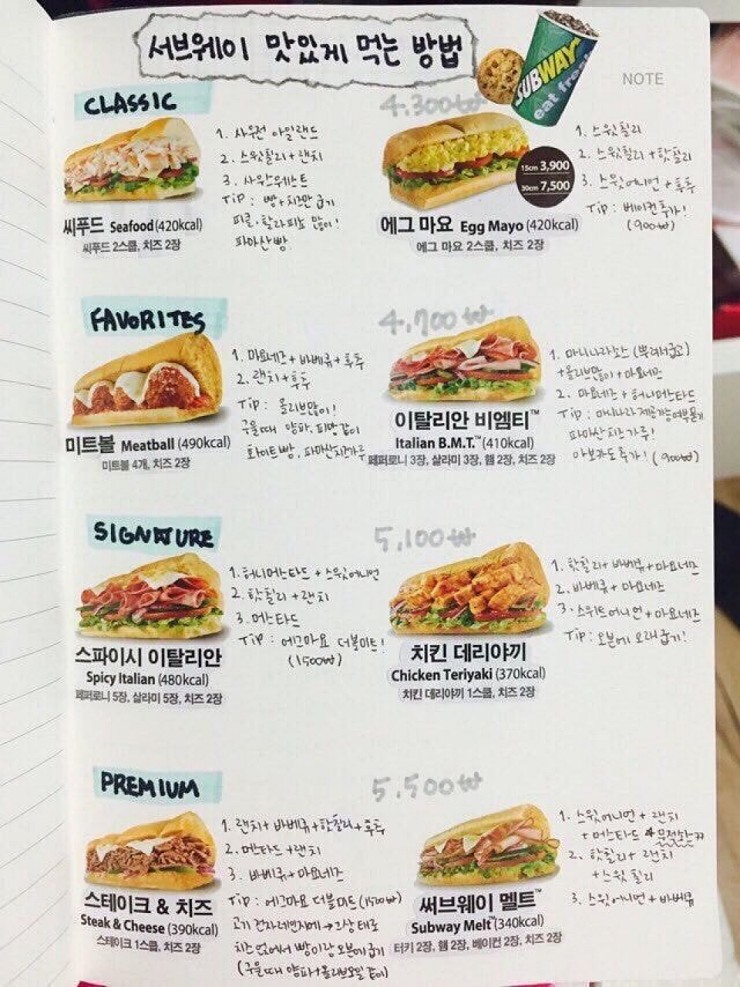 서브웨이 맛있게 먹는 방법
SUBWAY
eat fresh
NOTE
CLASSIC
4.300₩
1. 사우전 아일랜드
2. 스윗칠리+랜치
3. 사우스웨스트
TiP : 빵+치즈만 굽기
피클, 할라피뇨 많이!
파마산빵
씨푸드 Seafood (420kcal)
씨푸드 2스쿱, 치즈 2장
15cm 3,900
30cm 7,500
1. 스윗칠리
2. 스윗칠리+핫칠리
3. 스윗어니언+후추
TiP : 베이컨추가!
(900₩)
에그 마요 Egg Mayo (420kcal)
에그 마요 2스쿱, 치즈 2장
FAVORITES
4,700₩
1. 마요네즈+바베큐+후추
2. 랜치+후추
TiP : 올리브많이!
구울때 양파, 피망같이
화이트빵, 파마산치즈가루
미트볼 Meatball (490kcal)
미트볼 4개, 치즈 2장
1. 마리나라소스 (뿌려서굽고)
+올리브많이+마요네즈
2. 마요네즈+허니머스타드
TiP : 마리나라 제공가능여부묻기
파마산치즈가루!
아보카도추가! (900₩)
이탈리안 비엠티™
Italian B.M.T.™(410kcal)
페퍼로니 3장, 살라미 3장, 햄 2장, 치즈 2장
SIGNATURE
5,100₩
1. 허니머스타드+스윗어니언
2. 핫칠리+랜치
3. 머스타드
TiP : 에그마요 더블미트!
(1500₩)
스파이시 이탈리안
Spicy Italian (480kcal)
페퍼로니 5장, 살라미 5장, 치즈 2장
1. 핫칠리+바베큐+마요네즈
2. 바베큐+마요네즈
3. 스위트어니언+마요네즈
TiP : 오븐에 오래굽기!
치킨 데리야끼
Chicken Teriyaki (370kcal)
치킨 데리야끼 1스쿱, 치즈 2장
PREMIUM
5.500₩
1. 랜치+바베큐+핫칠리+후추
2. 머스타드+랜치
3. 바베큐+마요네즈
TiP : 에그마요 더블미트(1500₩)
고기 전자레인지에→그상태로
치즈얹어서 빵이랑 오븐에굽기
(구울때 양파+올리브오일 같이)
스테이크 & 치즈
Steak & Cheese (390kcal)
스테이크 1스쿱, 치즈 2장
1. 스윗어니언+랜치
+머스타드
2. 핫칠리+랜치
+스윗칠리
3. 스윗어니언+바베큐
써브웨이 멜트™
Subway Melt™(340kcal)
터키 2장, 햄 2장, 베이컨 2장, 치즈 2장